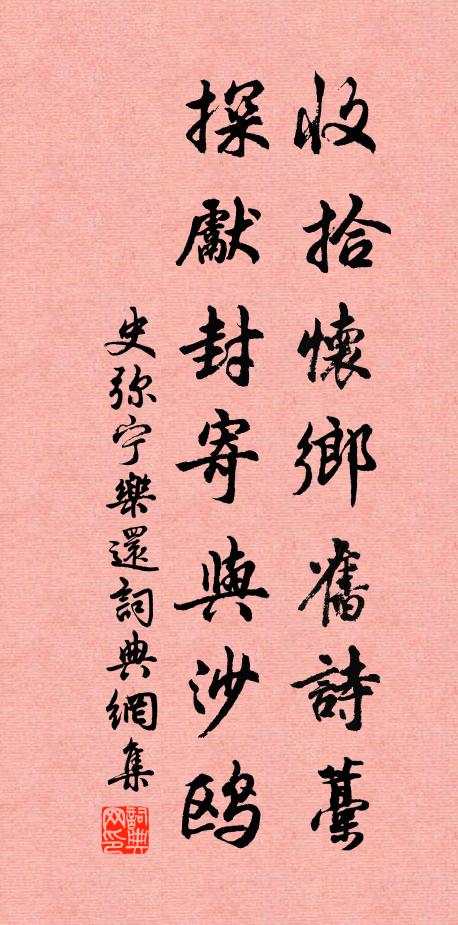 收拾懷鄉舊詩藁
探獻封寄與沙鸥
史弥宁樂還詞典網集
詞典
网印